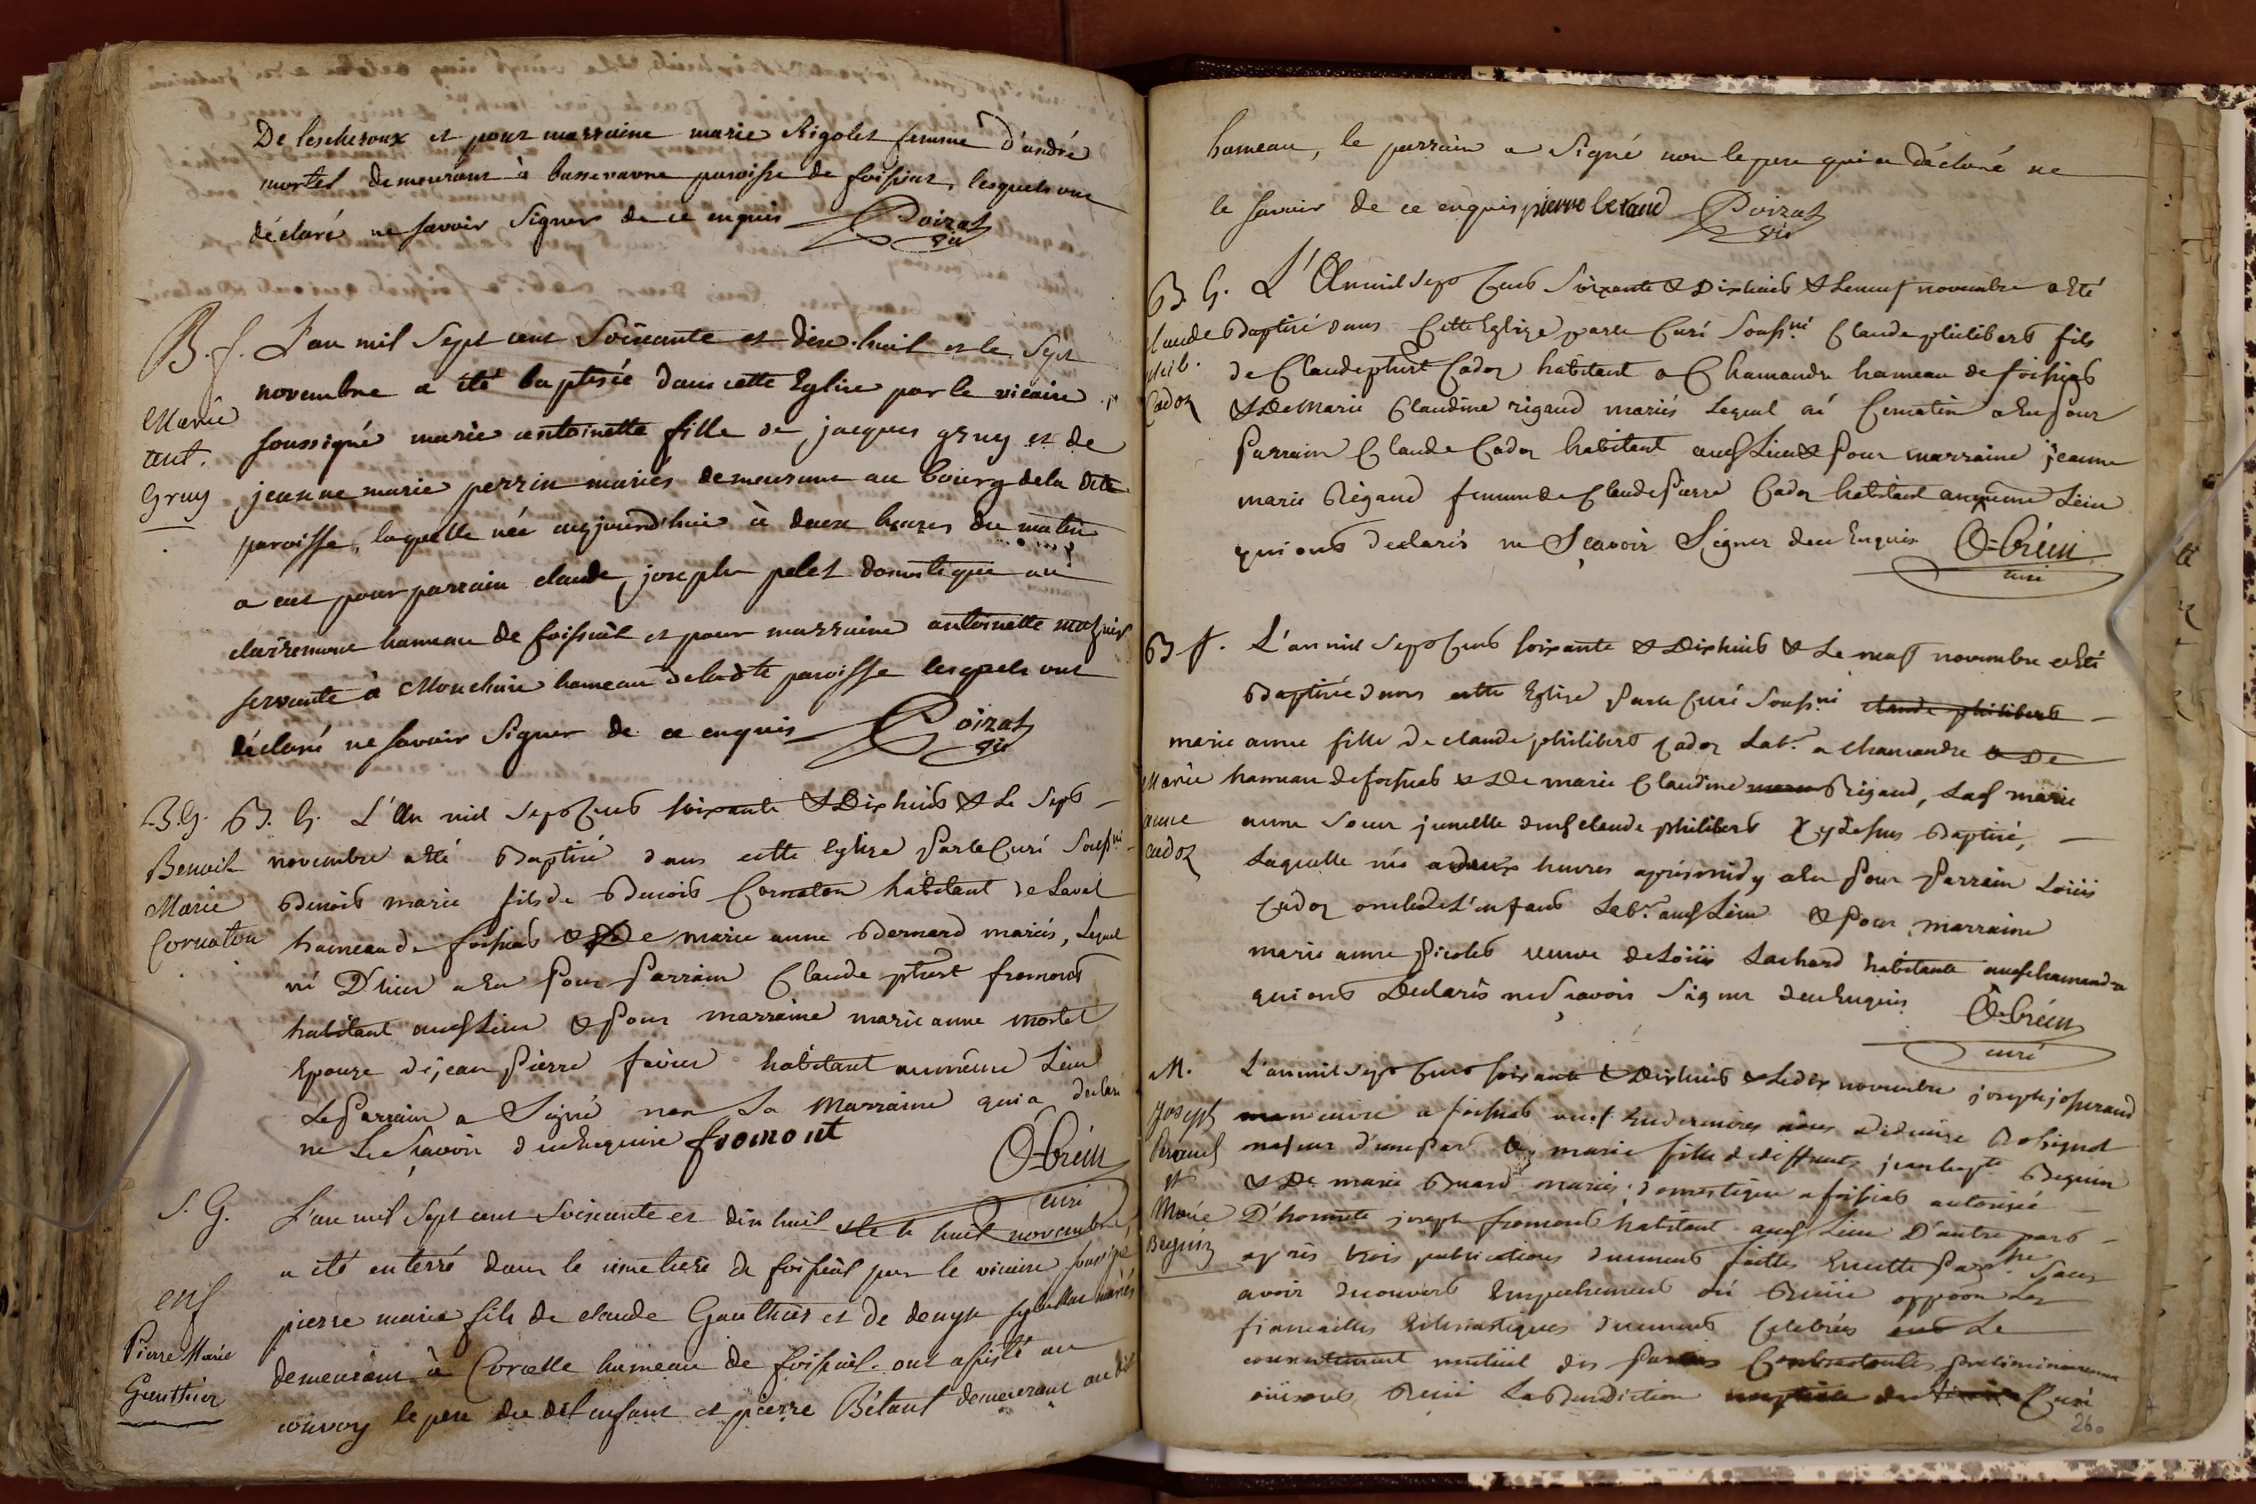 De lescheroux et pour marraine marie Rigolet femme d'andré
mortel demeurant à bassevavre paroisse de foissiat, lesquels ont
déclaré ne savoir signer de ce enquis Poizat
vic
B. f. L'an mil sept cent soixante et dix-huit et le sept
novembre a été baptisée dans cette Eglise par le vicaire
Marie
soussigné marie antoinette fille de jacques gruy et de
ant.
Gruy jeanne marie perrin mariés demeurant au bourg de la dte
paroisse, laquelle née aujourd'hui à deux heures du matin
a eut pour parrain claude joseph pelet domestique au
clairemont hameau de foissiat et pour marraine antoinette
servante à Monchin hameau de la dte paroisse lesquels ont
déclaré ne savoir signer de ce enquis Poizat
vic
B.G. B. G. L'An mil Sept Cent soixante & Dixhuit & Le Sept
Benoit novembre a Eté Baptisé dans cette Eglise par le Curé Soussné
Marie Benoit marie fils de Benoit Cornaton habitant de Laval
Cornaton hameau de foissiat & De marie anne Bernard mariés, Lequel
né D'hier a Eu Pour Parrain Claude phbert fromont
habitant aud Lieu & Pour marraine marie anne mortel
Epouze de jean Pierre favier habitant au même Lieu
Le Parrain a Signé non La Marraine qui a declaré
ne Le Sçavoir de ce Enquise fromont O-bréin
curé
S. G. L'an mil sept cent soixante et dix huit et le huit novembre,
a été enterré dans le cimetiere de foissiat par le vicaire soussigné
enf
pierre marie fils de claude Gauthier et de denyse mariés
Pierre Marie
demeurant à Corcelle hameau de foissiat. ont assisté au
Gauthier
convoy le pere du dit enfant et pierre Bétant demeurant au dit
hameau, le parrain a signé non le pere qui a déclaré ne
le savoir de ce enquis pierre betand Poizat
vic
B. G. L'An mil sept Cent Soixante & Dixhuit & Le neuf novembre a Eté
Claude Baptisé dans Cette Eglize par le Curé Soussné Claude philibert fils
phib. de Claude phbert Cadoz habitant a Chamandre hameau de foissiat
Cadoz & De Marie Claudine rigaud mariés Lequel né Ce matin a Eu Pour
Parrain Claude Cadoz habitant aud Lieu & Pour marraine jeanne
marie Rigaud femme de Claude Pierre Cadoz habitant au même Lieu
qui ont declarés ne Sçavoir Signer de ce Enquis O-bréin
curé
B f. L'an mil Sept Cent soixante & Dixhuit & Le neuf novembre a Eté
Baptisée dans cette Eglize Par le Curé Soussné claude philibert
marie anne fille de claude philibert Cadoz Labr. a chamandre & De
Marie hameau de foissiat & De marie Claudine Rigaud, Lad marie
anne anne Soeur jumelle dud claude philibert Cy dessus Baptisé,
cadoz Laquelle née a deux heures aprés midy a Eu Pour Parrain Loüis
Cadoz oncle de L'enfant Labr. aud Lieu & Pour marraine
marie anne Picolet veuve de Loüis Lachard habitante aud chamandre
qui ont Declarés ne Sçavoir Signer de ce Enquis O-bréin
curé
M. L'an mil sept Cent soixante & Dixhuit & Le dix novembre joseph josserand
Joseph manoeuvre a foissiat
majeur d'une part & marie fille de deffunt jean bapte Beguin
et & De marie Buard mariés; domestique a foissiat autorisée
Marie D'honnete joseph fromont habitant aud Lieu D'autre part
Beguin aprés trois publications duement faittes En cette Paroisse Sans
avoir decouvert Empechement ni Reçüe opposon Les
fiancailles Eclesiastiques duement Celebrées Le
consentement mutüel des Parties Contractantes préliminairement
Reçüe La Benediction nuptiale du Curé
260